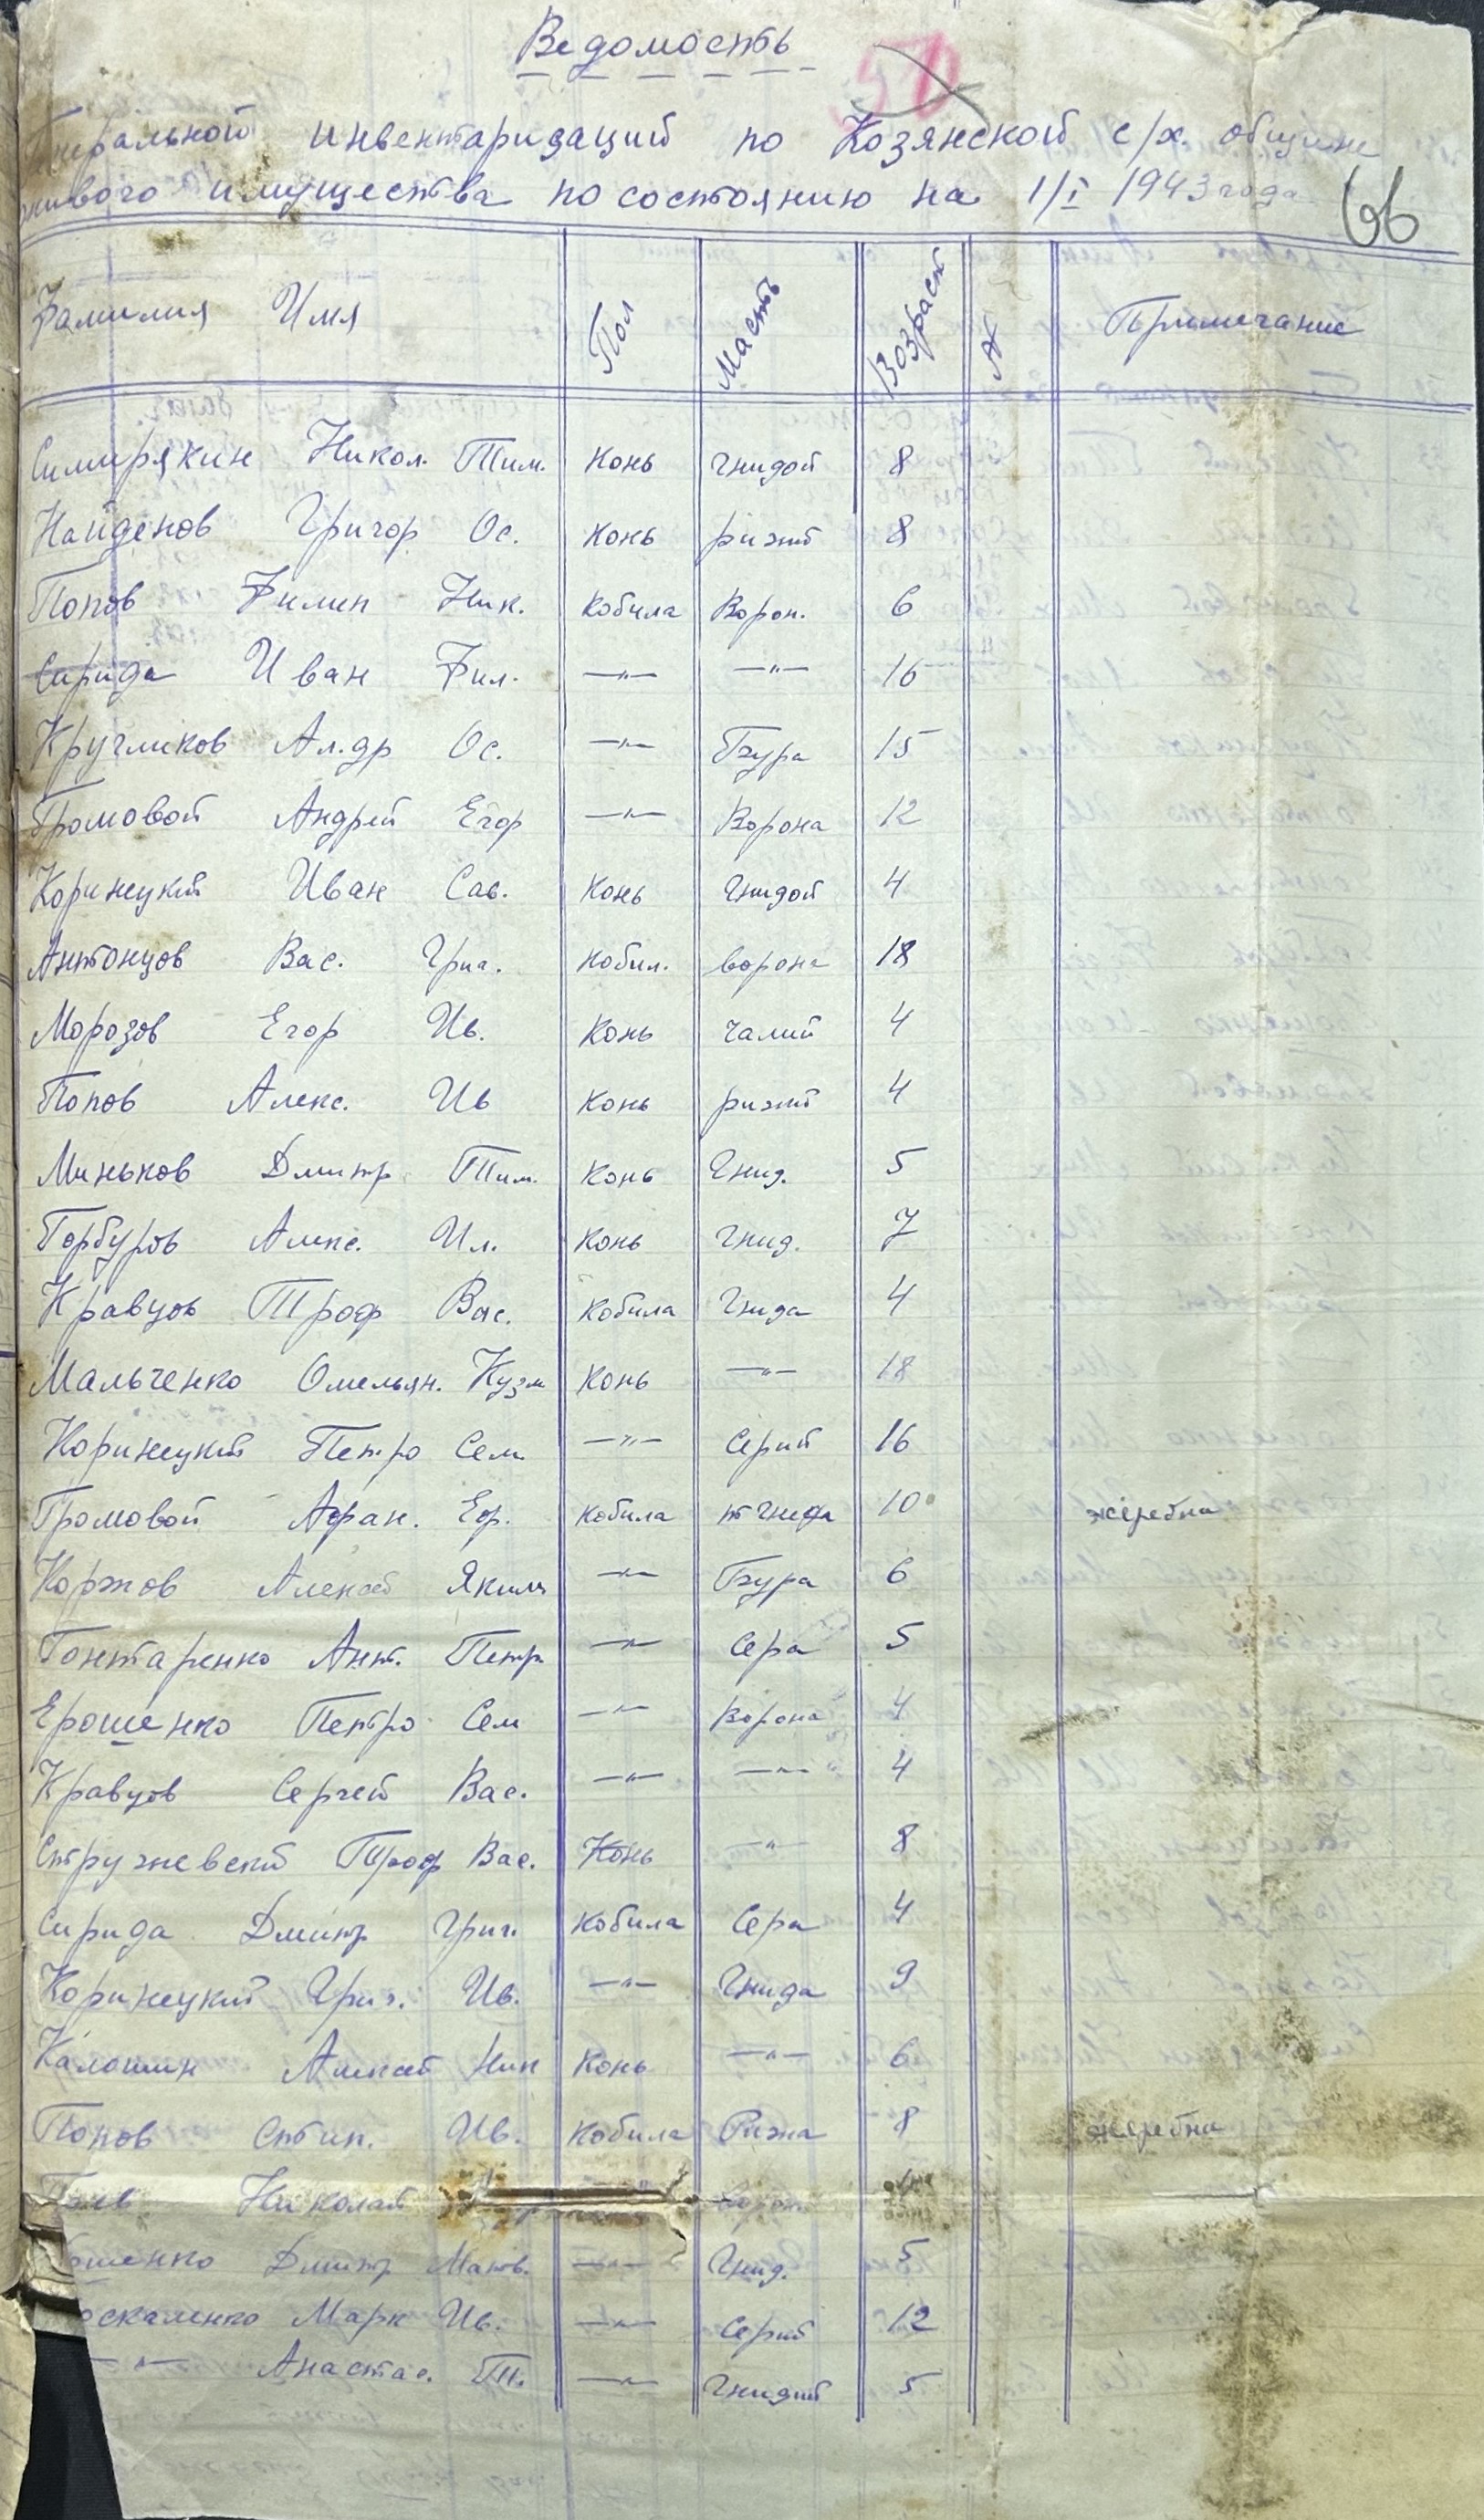 Ведомость
50
Генеральной инвентаризаций по Козянской с/х. общине
живого имущества по состоянию на 1/I 1943 года
66
Фамилия Имя Пол Масть Возраст № Примечание
Симирякин Никол. Тим. Конь гнидой 8
Найденов Григор Ос. Конь рижий 8
Попов Филип Ник. Кобила Ворон. 6
Сирида Иван Фил. —"— —"— 16
Кругликов Ал.др Ос. —"— Бура 15
Громовой Андрей Егор —"— Ворона 12
Коринецкий Иван Сав. Конь Гнидой 4
Антонцов Вас. Григ. Кобил. ворона 18
Морозов Егор Ив. Конь чалий 4
Попов Алекс. Ив Конь рижий 4
Миньков Дмитр Тим. Конь Гнид. 5
Горбуров Алекс. Ил. Конь Гнид. 7
Кравцов Троф Вас. Кобила Гнида 4
Мальченко Омельян. Кузм Конь —"— 18
Коринецкий Петро Сем. —"— Серий 16
Громовой Афан. Ег. Кобила т гнида 10 жеребна
Коржов Алексей Яким —"— Бура 6
Гонтаренко Ант. Петр —"— Сера 5
Ерошенко Петро Сем —"— Ворона 4
Кравцов Сергей Вас. —"— —"— 4
Стружевский Троф Вас. Конь —"— 8
Сирида Дмитр Григ. Кобила Сера 4
Коринецкий Григ. Ив. —"— Гнида 9
Калошин Алексей Ник Конь —"— 6
Попов Степ. Ив. Кобила Рижа 8 жеребна
Николай
Дмитр Матв. —"— Гнид. 5
оскаленко Марк Ив. —"— Серий 12
—"— Анастас. Т. —"— Гнидий 5